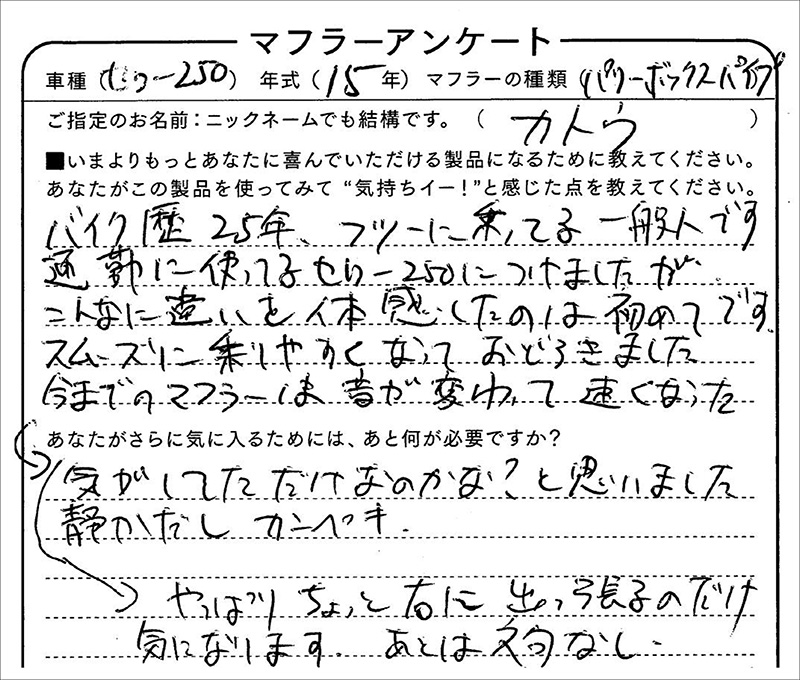 マフラーアンケート
車種（セロー250） 年式（15年）マフラーの種類（パワーボックスパイプ
ご指定のお名前：ニックネームでも結構です。（ カトウ ）
■いまよりもっとあなたに喜んでいただける製品になるために教えてください。
あなたがこの製品を使ってみて“気持ちイー！”と感じた点を教えてください。
バイク歴25年、フツーに乗ってる一般人です
通勤に使ってるセロー250につけましたが
こんなに違いを体感したのは初めてです
スムーズに乗りやすくなっておどろきました
今までのマフラーは音が変わって速くなった
あなたがさらに気に入るためには、あと何が必要ですか？
気がしてただけなのかな？と思いました
静かだし カンペキ．
やっぱりちょっと右に出っ張るのだけ
気になります．あとは文句なし．